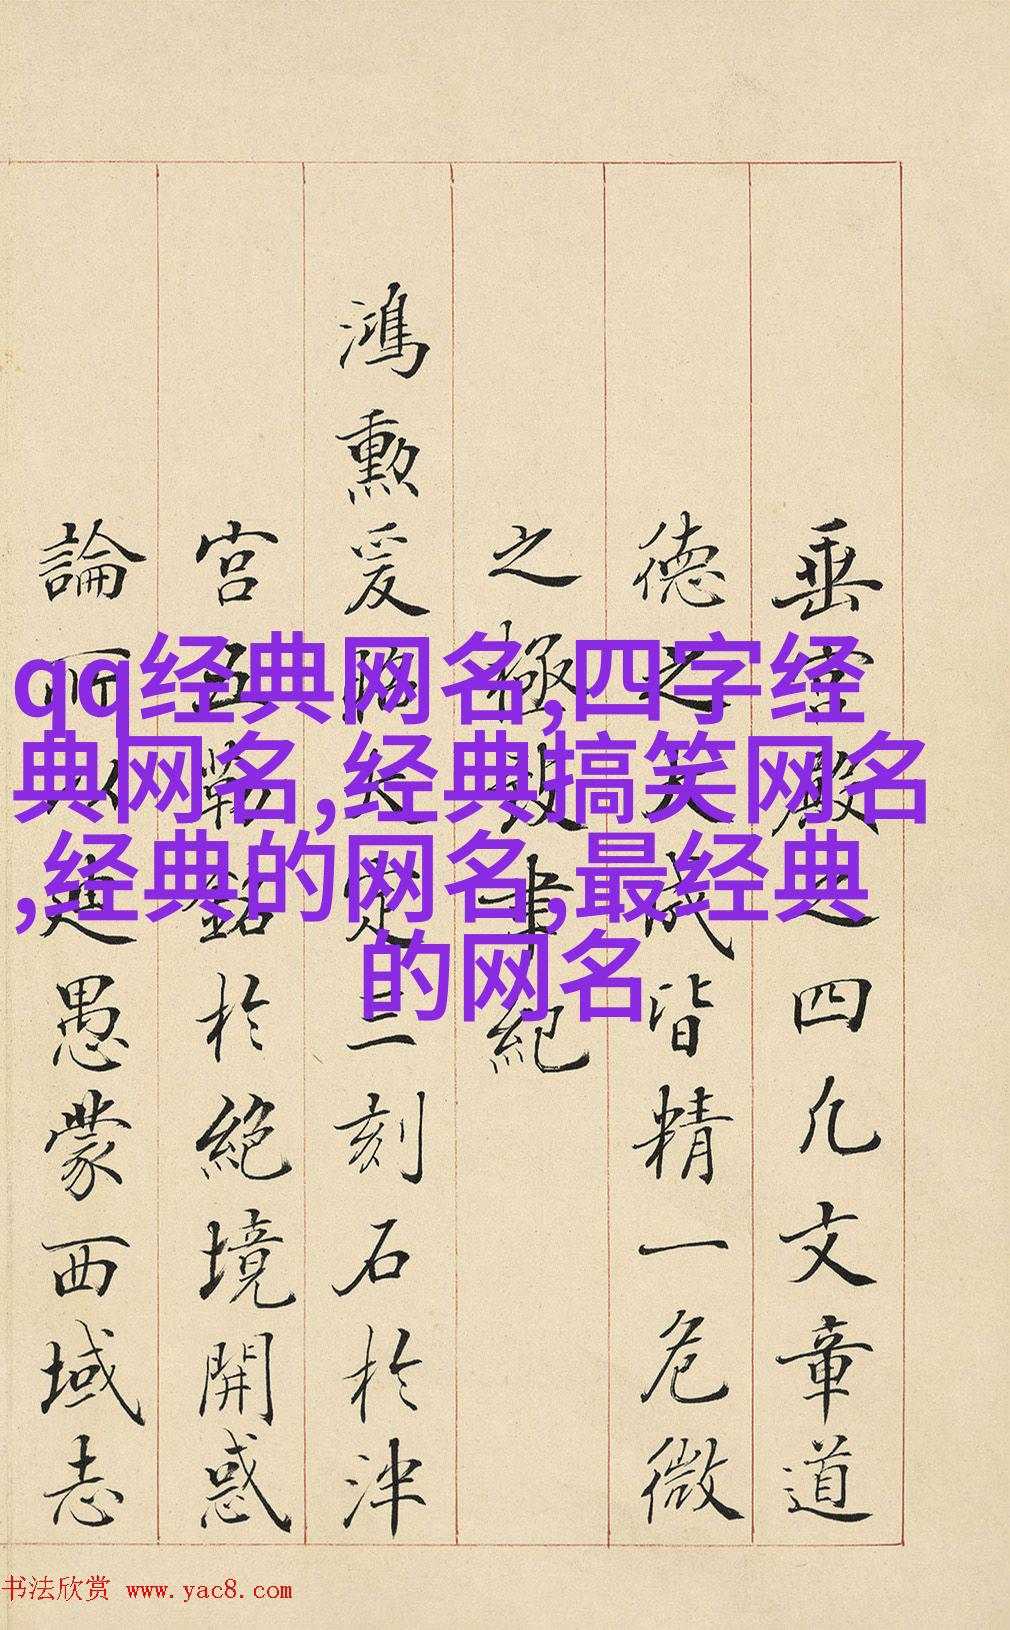 垂殿之四几文章道
德之大成皆精一危微
之極聿紀
鴻勳爰定三刻石於津
宮五勒銘於絕境開惑
論以愚蒙西域志
qq经典网名,四字经
典网名,经典搞笑网名
,经典的网名,最经典
的网名
书法欣赏 www.yac8.com